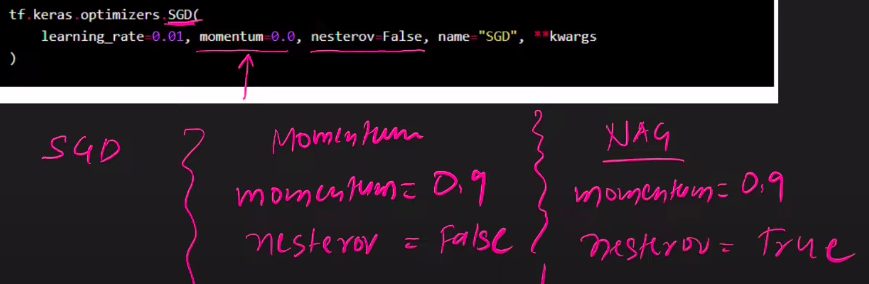 tf.keras.optimizers.SGD(
    learning_rate=0.01, momentum=0.0, nesterov=False, name="SGD", **kwargs
)
SGD
Momentum
momentum= 0.9
nesterov = False
NAG
momentum= 0.9
nesterov = True